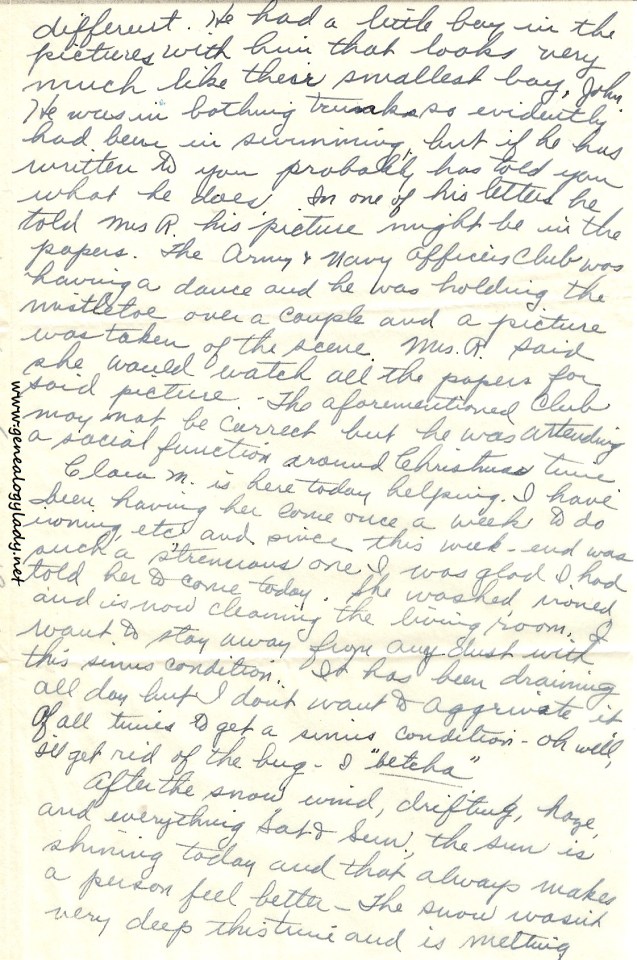 different. He had a little boy in the
pictures with him that looks very
much like their smallest boy, John.
He was in bathing trunks so evidently
had been in swimming, but if he has
written to you probably has told you
what he does. In one of his letters he
told Mrs R. his picture might be in the
papers. The Army & Navy Officers Club was
having a dance and he was holding the
mistletoe over a couple and a picture
was taken of the scene. Mrs. R. said
she would watch all the papers for
said picture. The aforementioned Club
may not be correct but he was attending
a social function around Christmas time
Clara M. is here today helping. I have
been having her come once a week to do
ironing, etc and since this week-end was
such a strenuous one I was glad I had
told her to come today. She washed, ironed
and is now cleaning the living room. I
want to stay away from any dust with
this sinus condition. It has been draining
all day but I dont want to aggrivate it
Of all times to get a sinus condition - oh well,
I'll get rid of the bug - I "betcha"
After the snow, wind, drifting, haze,
and everything Sat & Sun, the sun is
shining today and that always makes
a person feel better - The snow wasn't
very deep this time and is melting
www.genealogylady.net